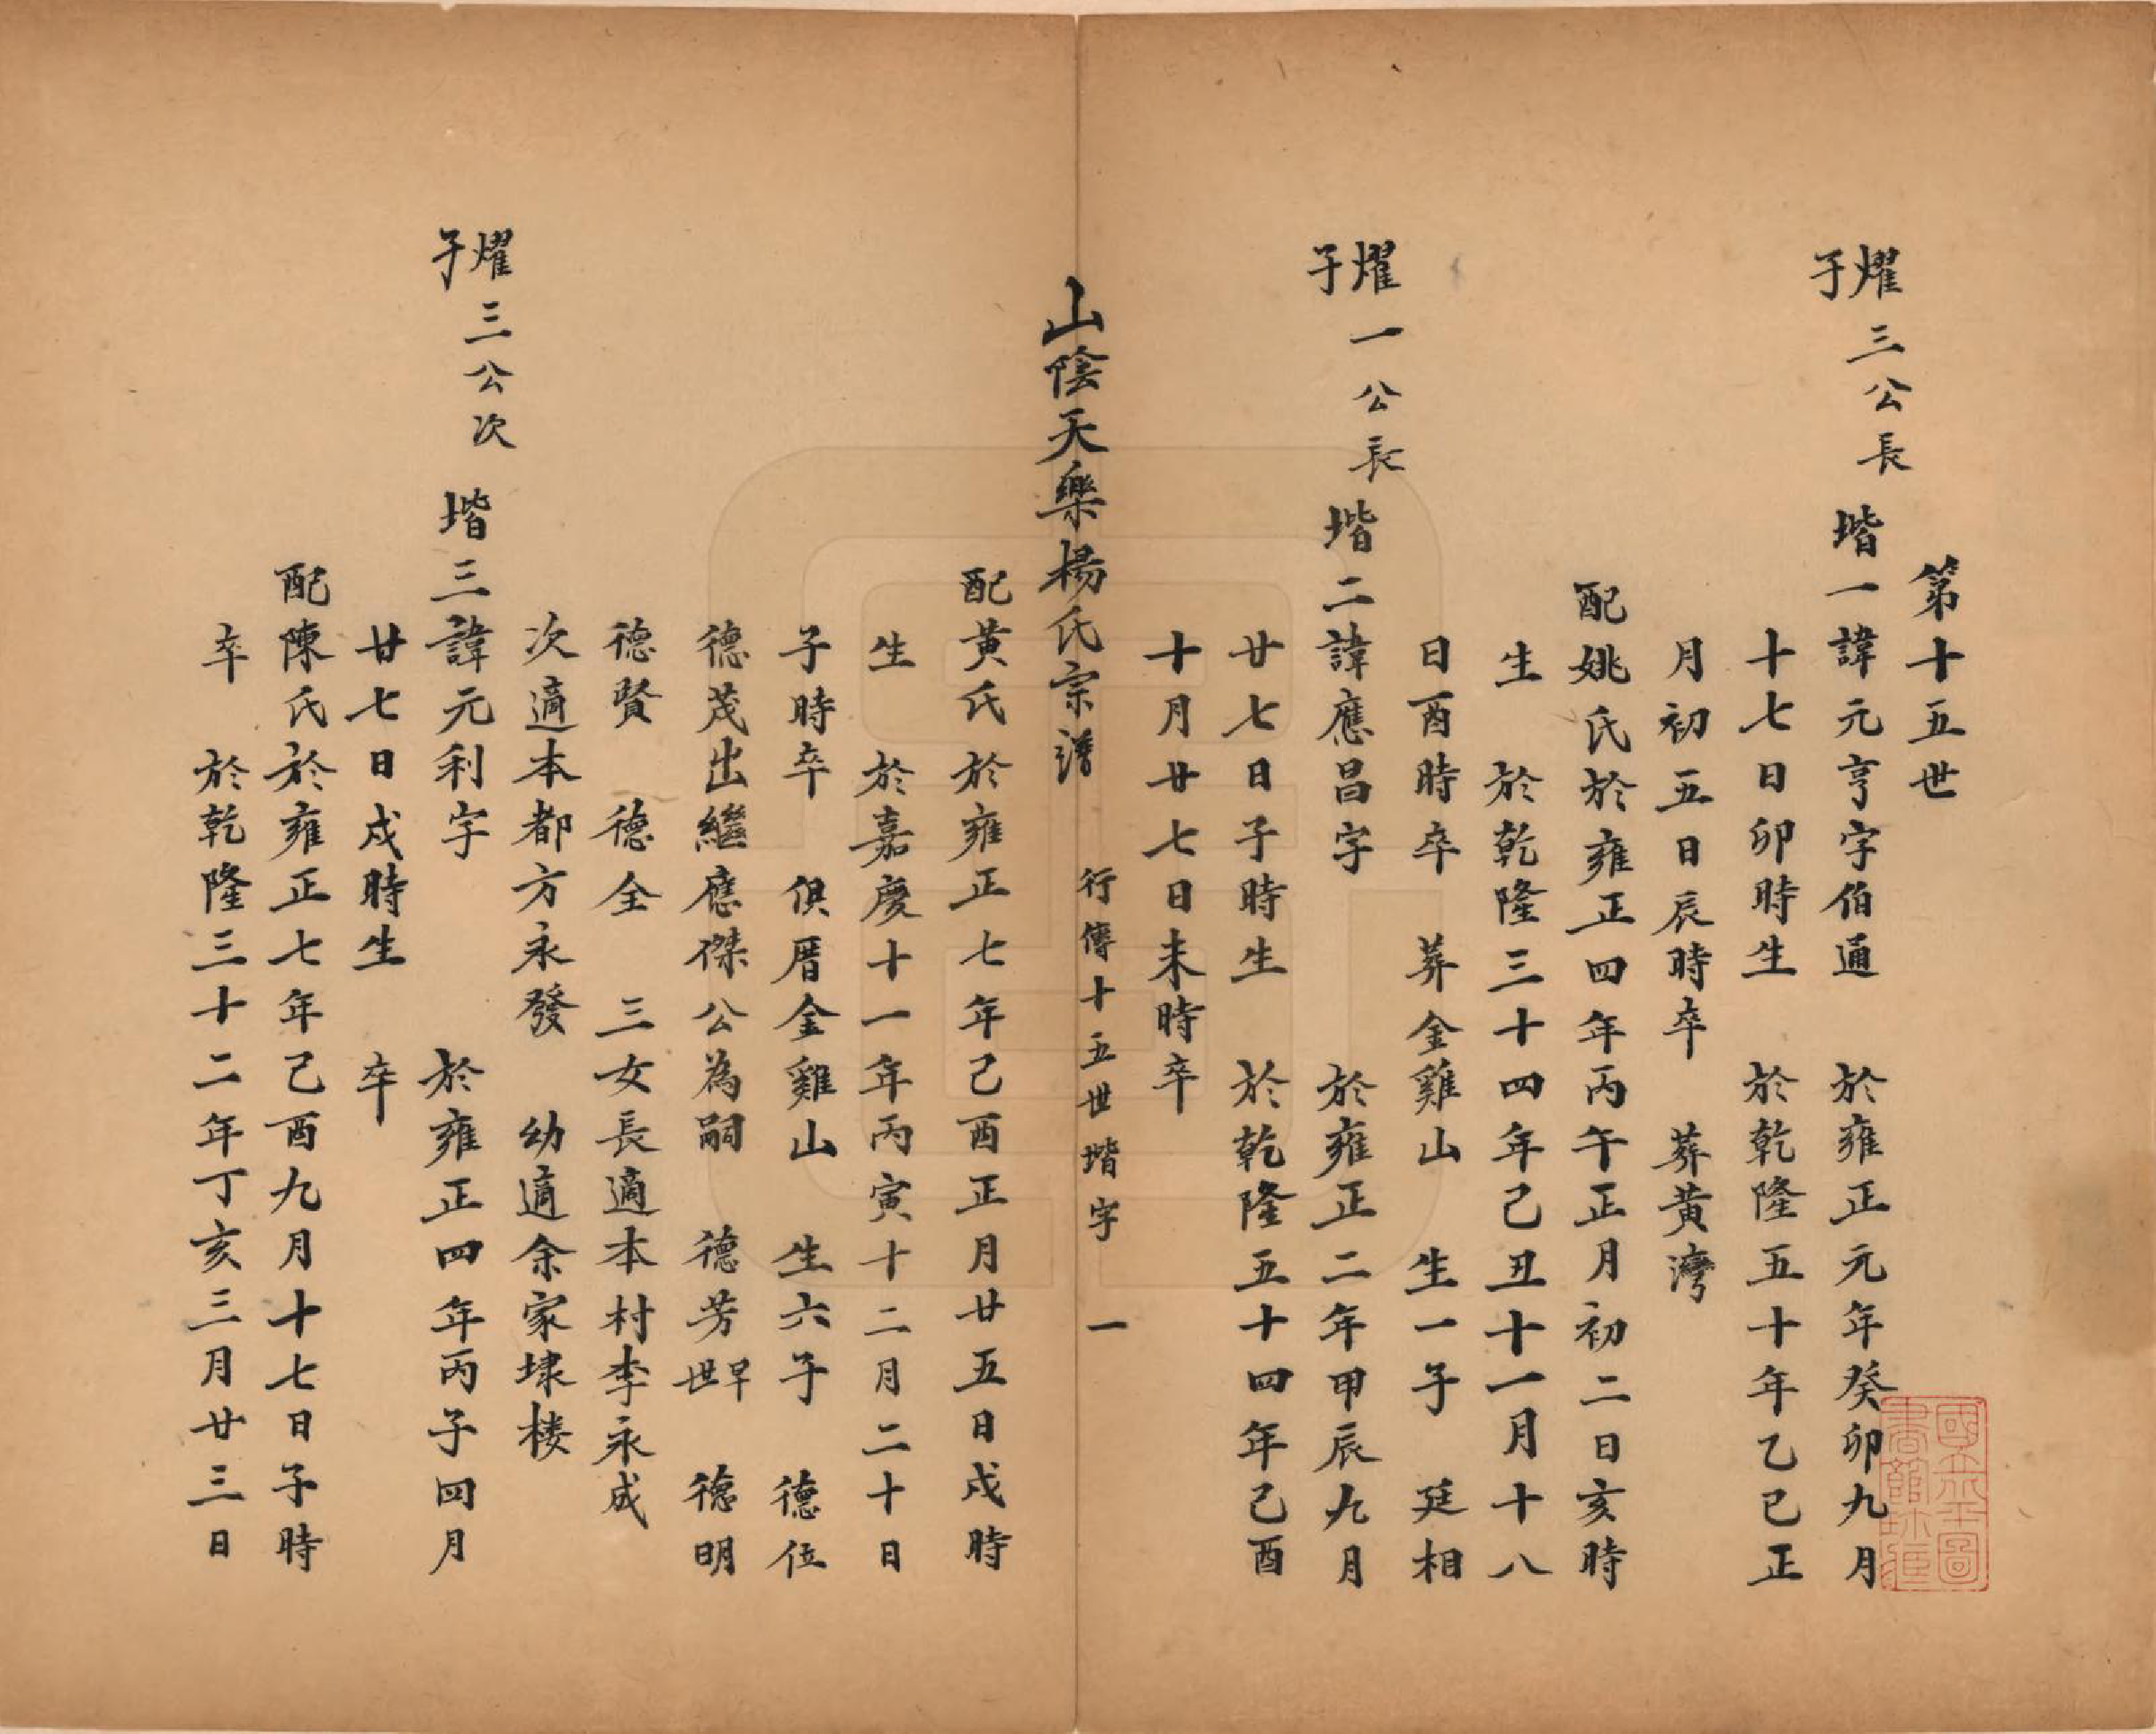 第十五世
燿三公長子 堦一諱元亨字伯通 於雍正元年癸卯九月
十七日卯時生 於乾隆五十年乙巳正
月初五日辰時卒 葬黄灣
配姚氏於雍正四年丙午正月初二日亥時
生 於乾隆三十四年己丑十一月十八
日酉時卒 葬金雞山 生一子 廷相
燿一公長子 堦二諱應昌字 於雍正二年甲辰九月
廿七日子時生 於乾隆五十四年己酉
十月廿七日未時卒
山陰天樂楊氏宗譜 行傳十五世堦字 一
配黄氏於雍正七年己酉正月廿五日戌時
生 於嘉慶十一年丙寅十二月二十日
子時卒 俱厝金雞山 生六子 德位
德茂出繼應傑公為嗣 德芳早世 德明
德賢 德全 三女長適本村李永成
次適本都方永發 幼適余家埭楼
燿三公次子 堦三諱元利字 於雍正四年丙子四月
廿七日戌時生 卒
配陳氏於雍正七年己酉九月十七日子時
卒 於乾隆三十二年丁亥三月廿三日
國立北平圖書館珍藏